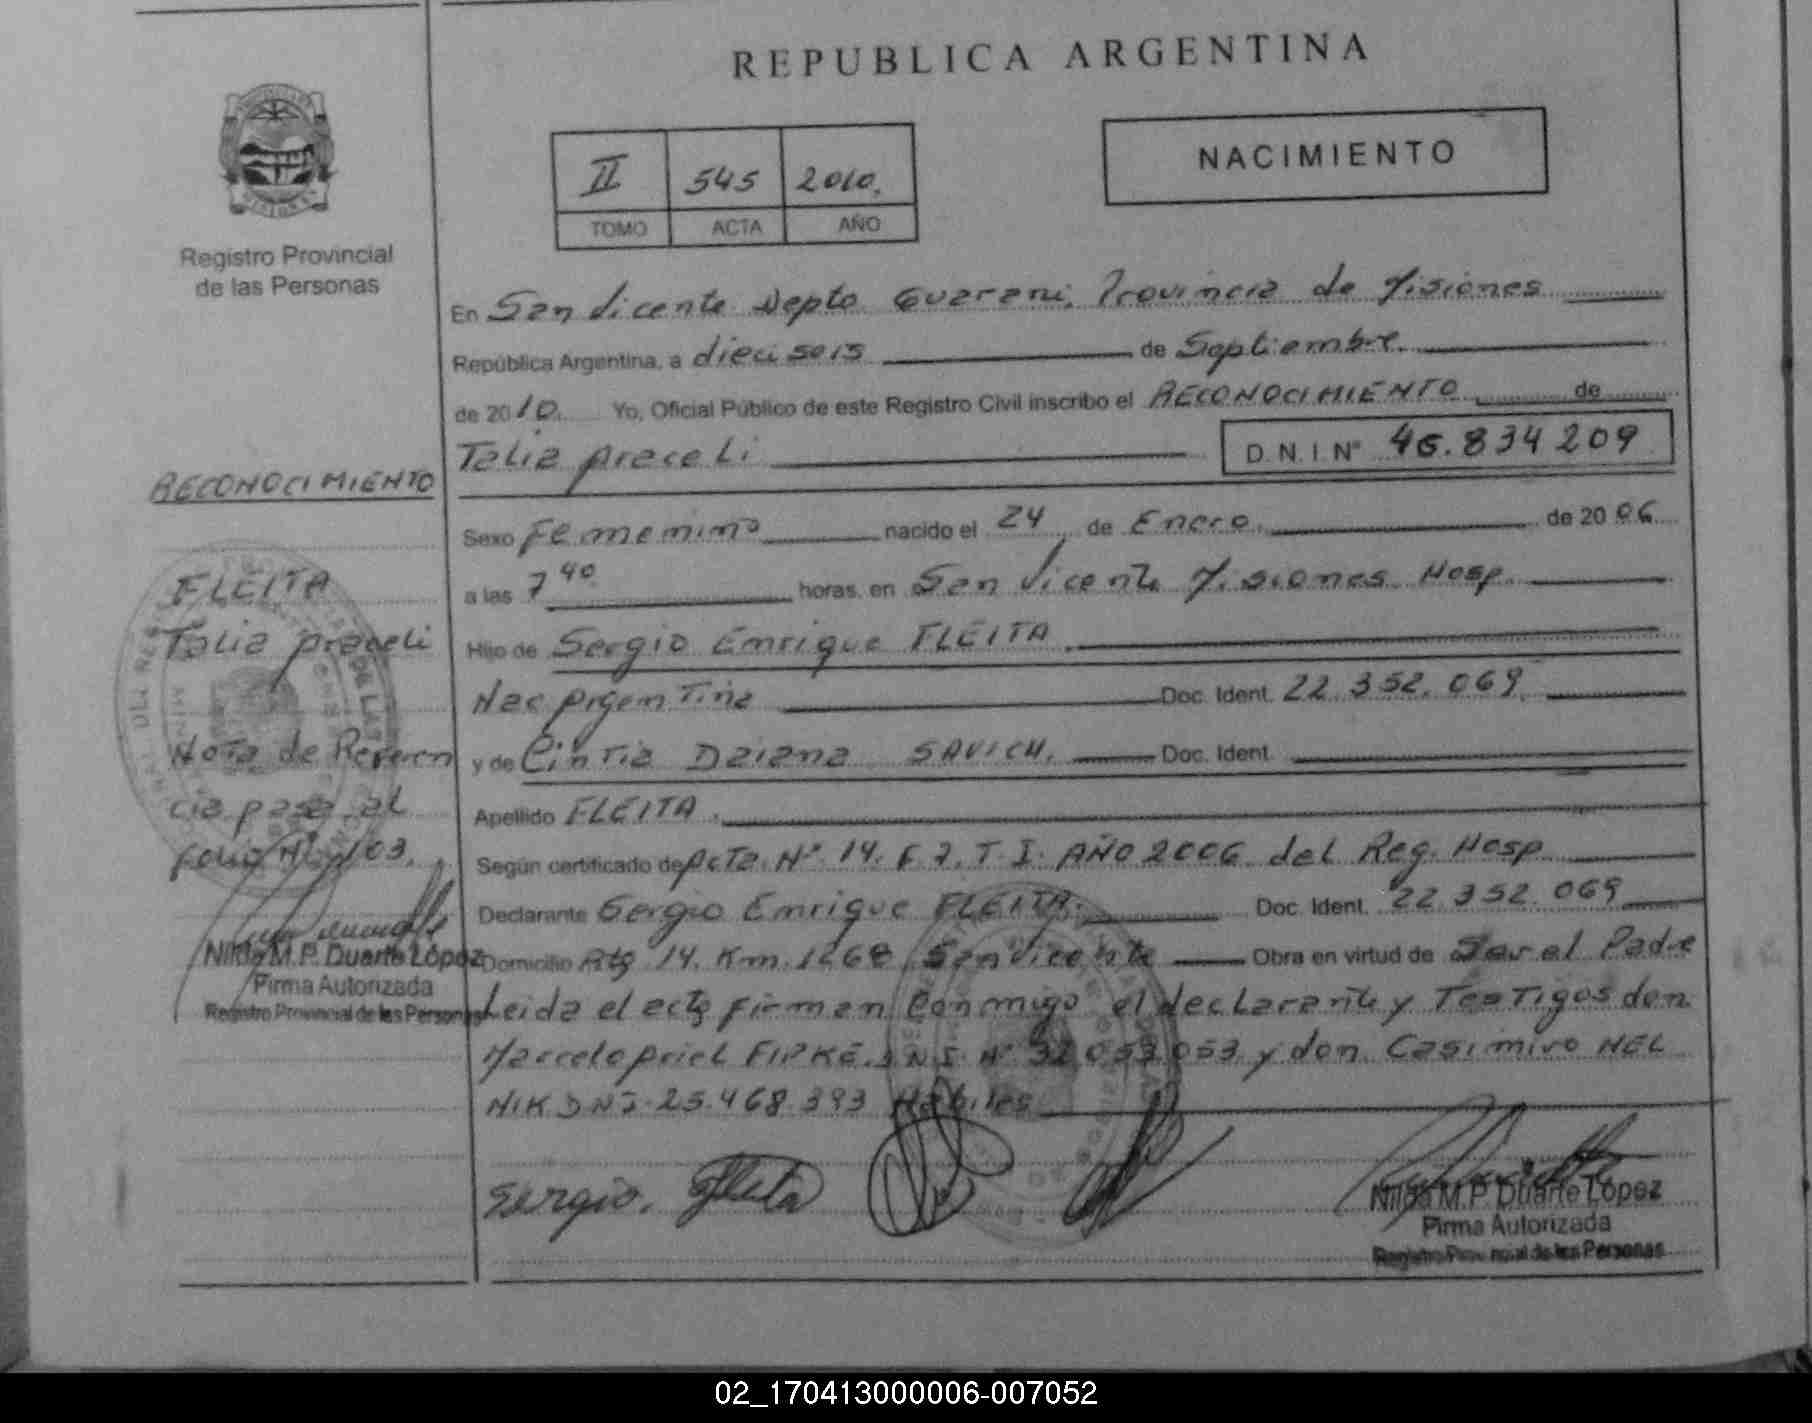 REPUBLICA ARGENTINA
NACIMIENTO
II 545 2010.
TOMO ACTA AÑO
Registro Provincial
de las Personas
En San Vicente Depto Guarani, Provincia de Misiones
República Argentina, a dieciseis de Septiembre.
de 2010. Yo, Oficial Público de este Registro Civil inscribo el RECONOCIMIENTO de
Talia Araceli D.N.I.Nº 46.834 209
Sexo Femenino nacido el 24 de Enero. de 2006
a las 7 40 horas. en San Vicente Misiones Hosp.
Hijo de Sergio Enrique FLEITA.
Nac Argentina Doc. Ident. 22.352.069.
y de Cintia Daiana SAVICH. Doc. Ident.
Apellido FLEITA.
Según certificado de Acta Nº 14. F.7. T.I. AÑO 2006 del Reg. Hosp
Declarante Sergio Enrique FLEITA. Doc. Ident. 22.352.069
Domicilio Rta 14. Km. 1268 San Vicente Obra en virtud de Ser el Padre
Leida el acta firman Conmigo el declarante y Testigos don
Marcelo Ariel FIPKE. DNI. Nº 32 053 053 y don Casimiro HEL
NIK DNI. 25.468.393 Habiles
Sergio. Fleita
Nilda M.P. Duarte López
Firma Autorizada
Registro Provincial de las Personas
RECONOCIMIENTO
FLEITA
Talia Araceli
Nota de Referen
cia pasa al
folio Nº 103.
Nilda M.P. Duarte López
Firma Autorizada
Registro Provincial de las Personas
02_170413000006-007052